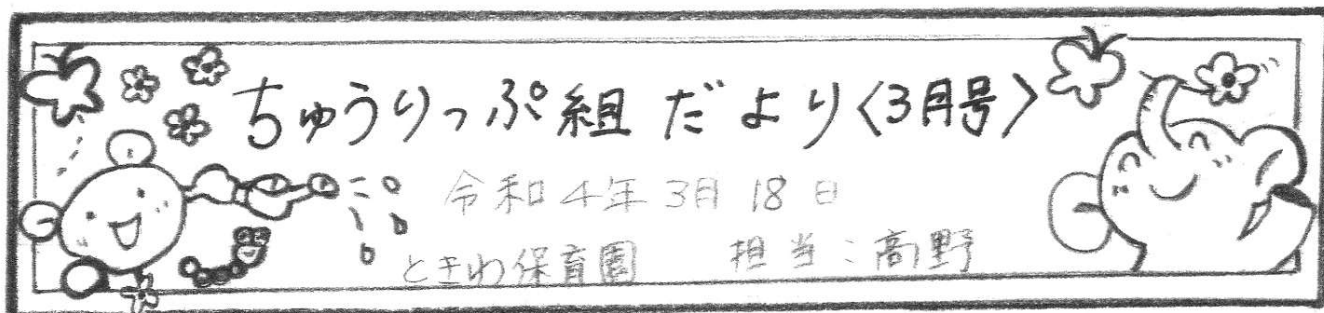 ちゅうりっぷ組だより〈3月号〉
令和4年3月18日
ときわ保育園 担当：高野